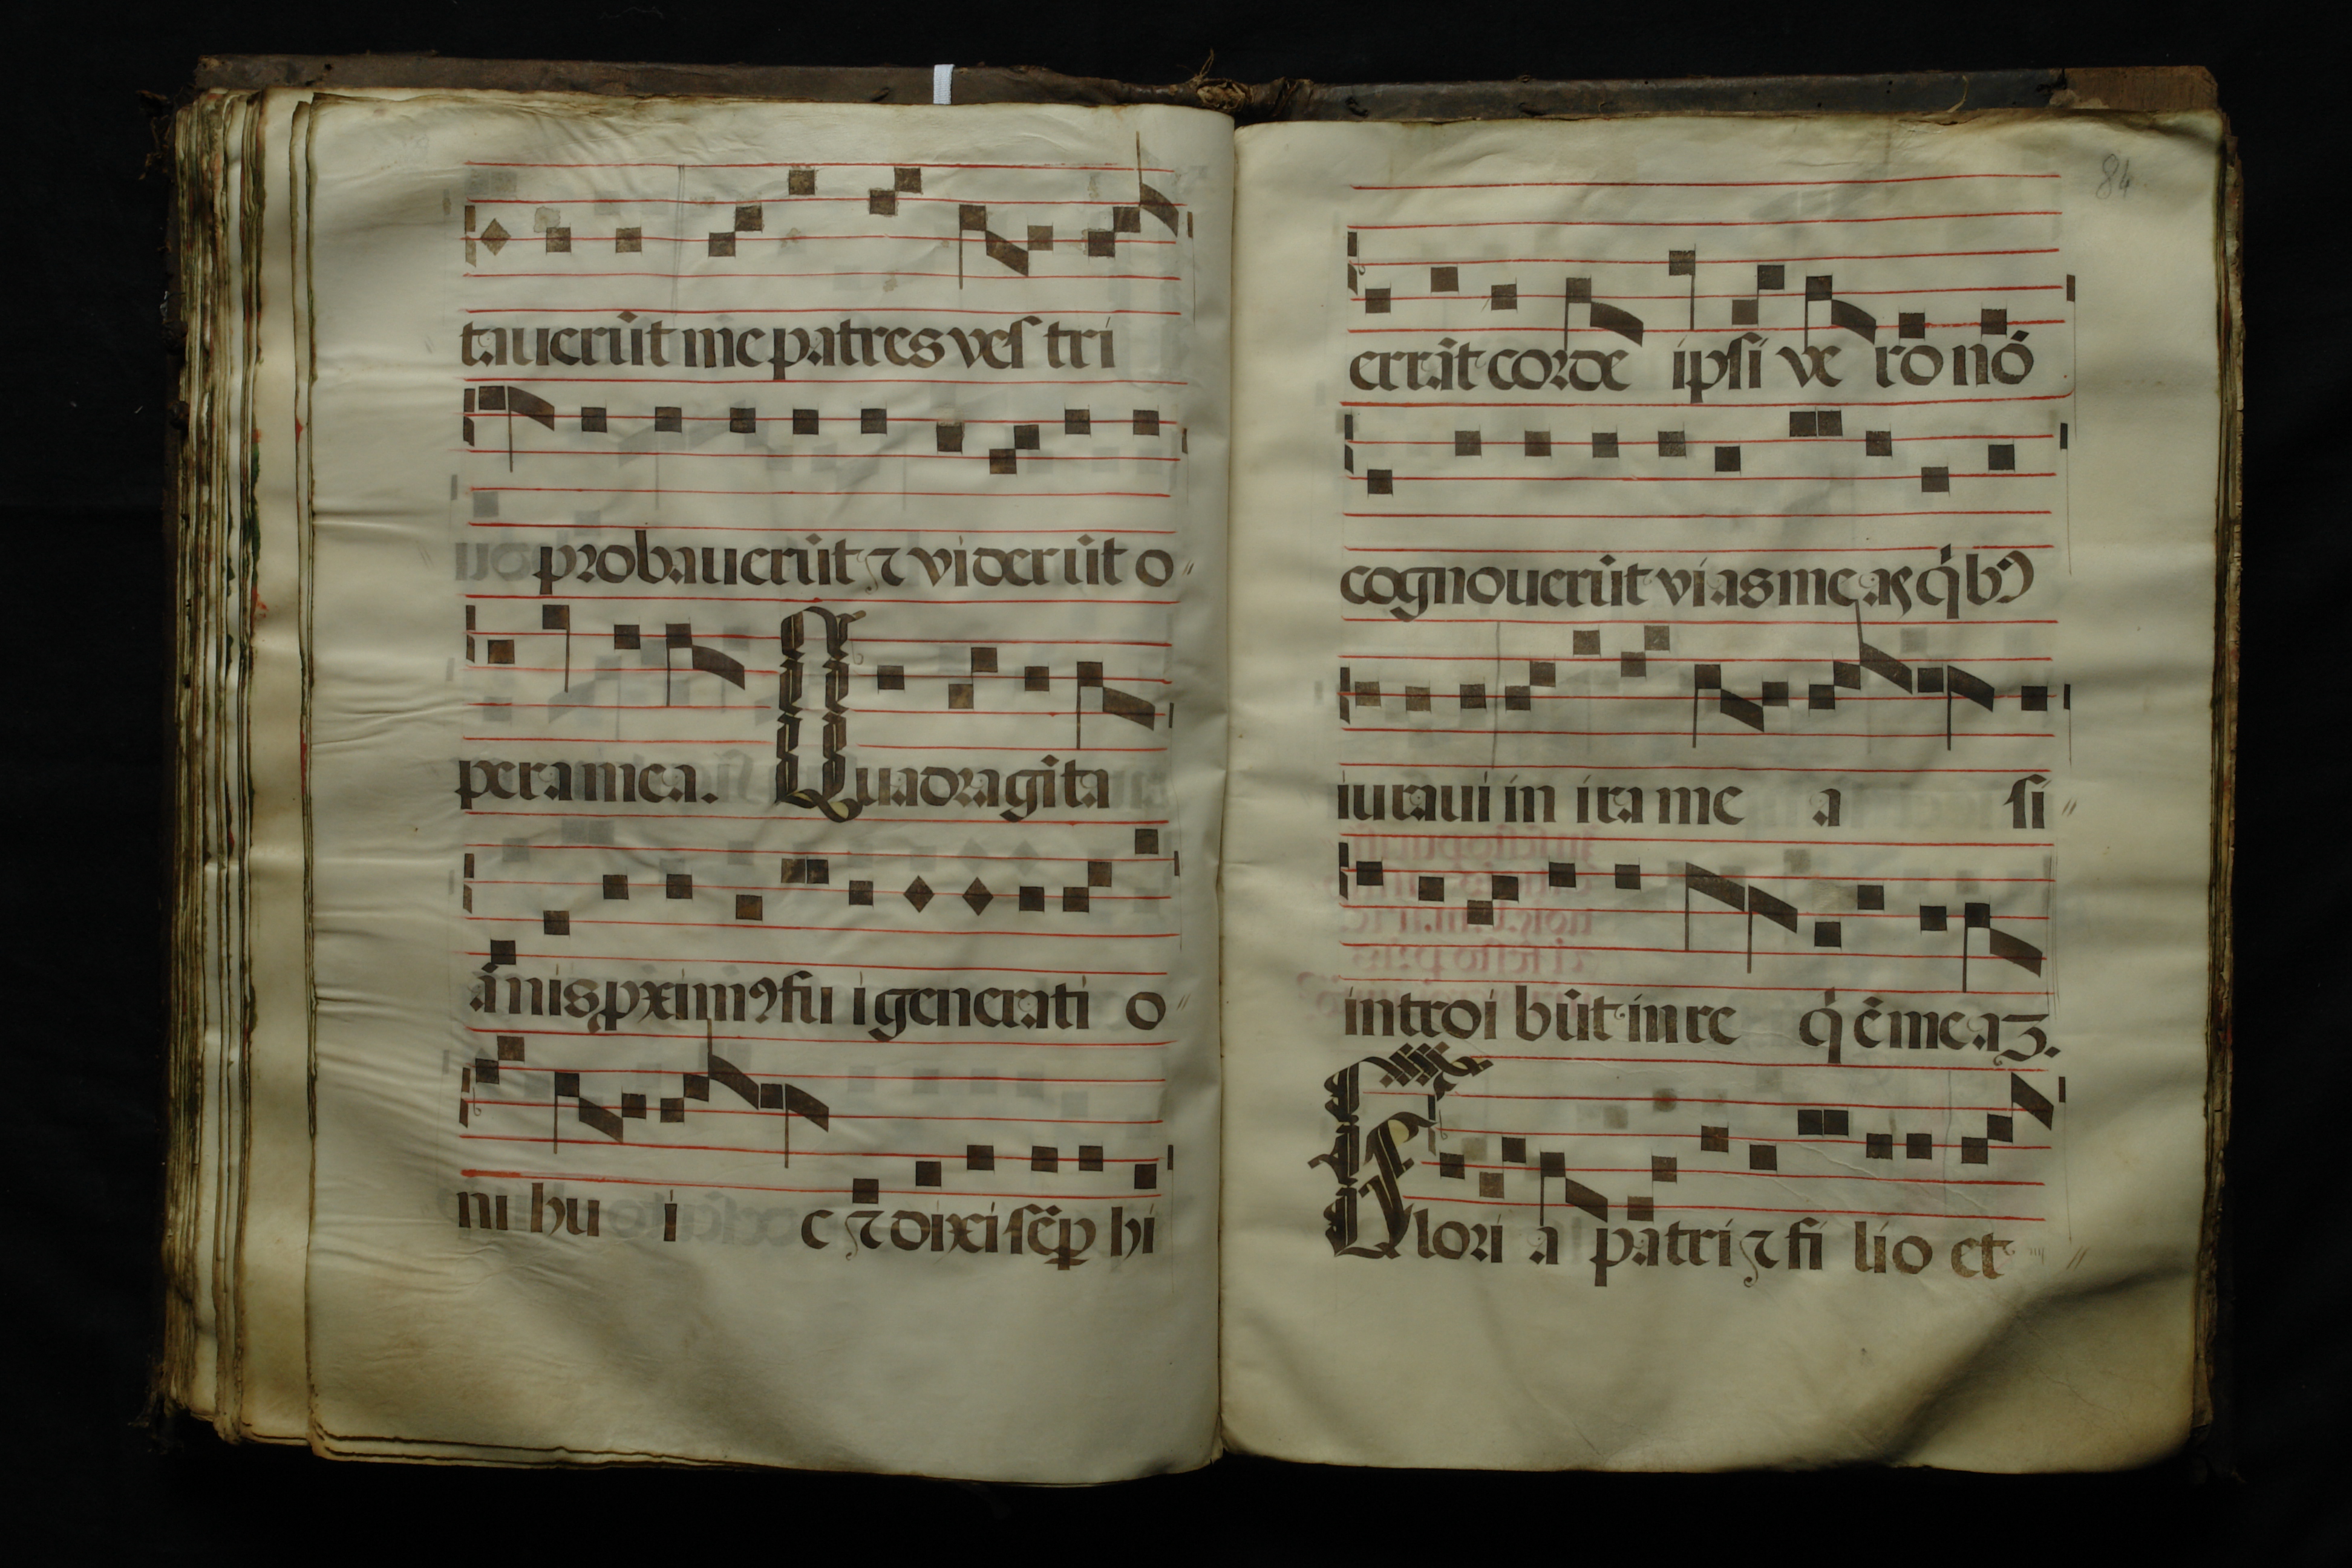 tauerūt me patres ves tri
probauerūt ⁊ viderūt o
pera mea. Quadragīta
ānis pximꝰ fu i generati o
ni hu i c ⁊ dixi sēp hi
84
errāt corde ipsi ve ro nō
cognouerūt vias meas qͥbꝰ
iuraui in ira me a si
introi būt in re qͥē meaꝫ.
Glori a patri ⁊ fi lio et